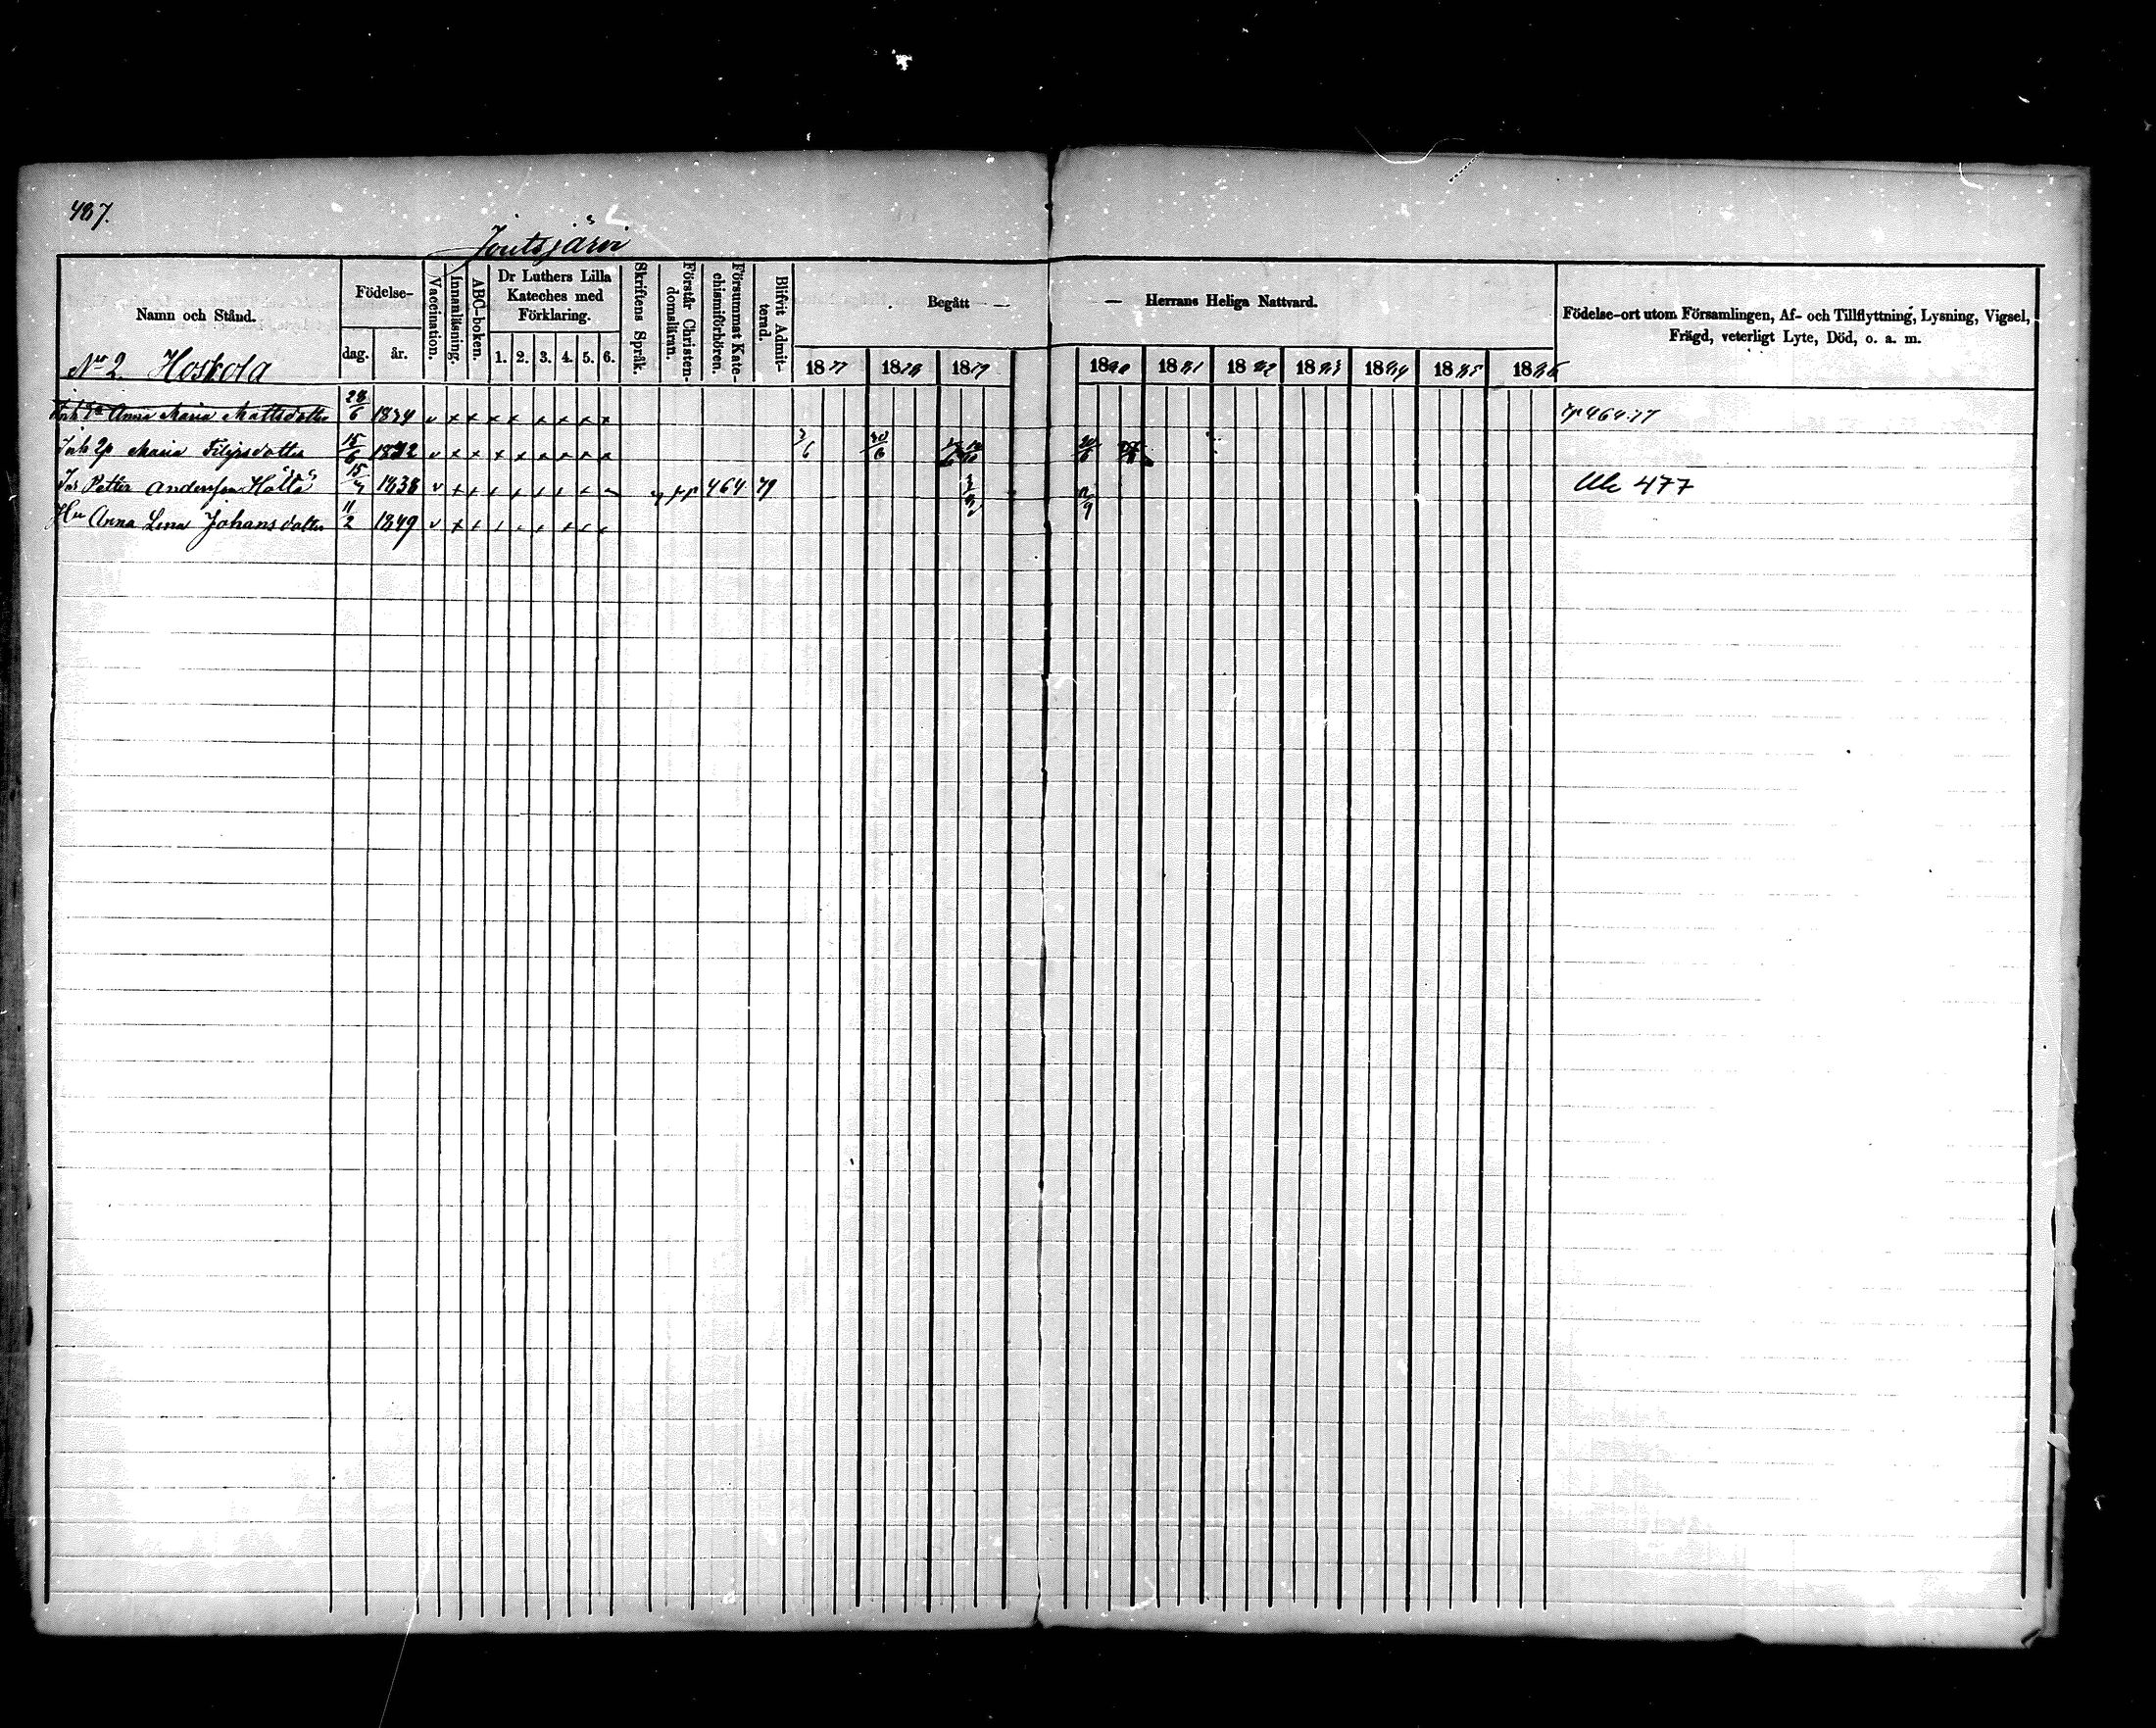 487.
Joutsjärvi
Namn och Stånd.
Födelse-
dag. år.
Vaccination.
Innanläsning.
ABC-boken.
Dr Luthers Lilla
Kateches med
Förklaring.
1. 2. 3. 4. 5. 6.
Skriftens Språk.
Förstår Christen-
domsläran.
Försummat Kate-
chismiförhören.
Blifvit Admit-
terad.
Begått —
— Herrans Heliga Nattvard.
1877 1878 1879 1880 1881 1882 1883 1884 1885 1886
Födelse-ort utom Församlingen, Af- och Tillflyttning, Lysning, Vigsel,
Frägd, veterligt Lyte, Död, o. a. m.
No 2. Hoskola
Anna Maria Mattsdotter 28/6 1834 v x x x x x x x x 464.77
Inh Maria Filipsdotter 15/6 v x x x x x x x x
Petter Andersson Hältä 15/7 1838 v x x x x x x 464 79 477
Hu Anna Lena Johansdotter 11/2 1849 v x x